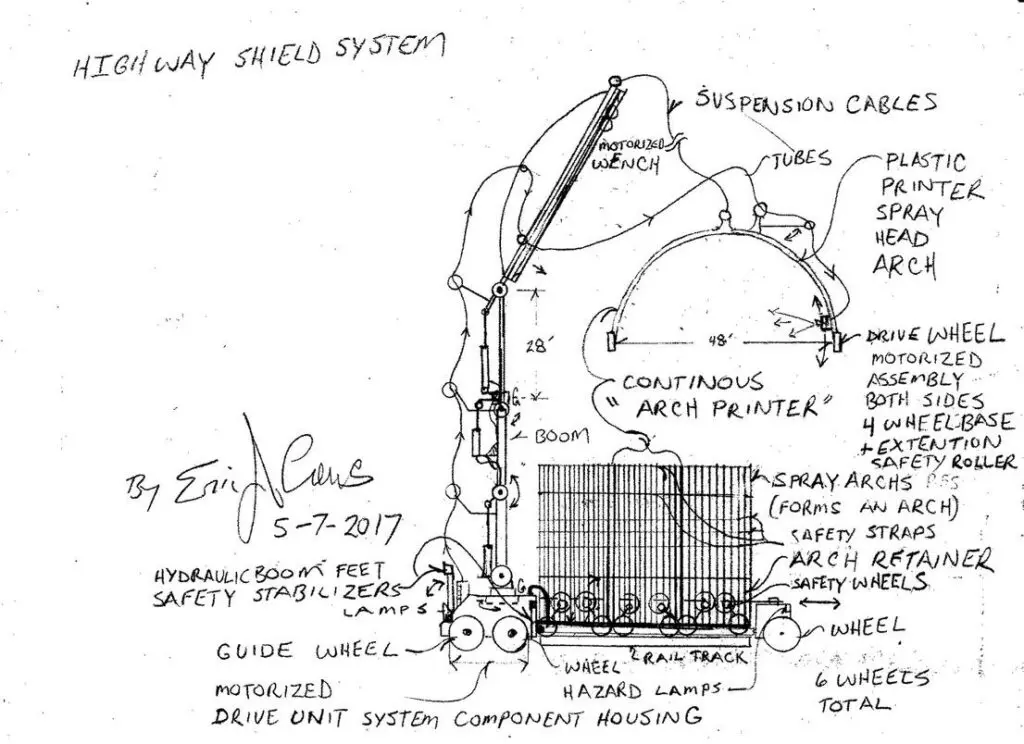 HIGHWAY SHIELD SYSTEM
SUSPENSION CABLES
MOTORIZED
WENCH
TUBES
PLASTIC
PRINTER
SPRAY
HEAD
ARCH
28'
48'
DRIVE WHEEL
MOTORIZED
ASSEMBLY
BOTH SIDES
4 WHEEL BASE
+ EXTENTION
SAFETY ROLLER
CONTINOUS
"ARCH PRINTER"
BOOM
By Eric
5-7-2017
SPRAY ARCHS
(FORMS AN ARCH)
SAFETY STRAPS
ARCH RETAINER
SAFETY WHEELS
HYDRAULIC BOOM FEET
SAFETY STABILIZERS
LAMPS
GUIDE WHEEL
WHEEL
WHEEL
2 RAIL TRACK
HAZARD LAMPS
6 WHEELS
TOTAL
MOTORIZED
DRIVE UNIT SYSTEM COMPONENT HOUSING